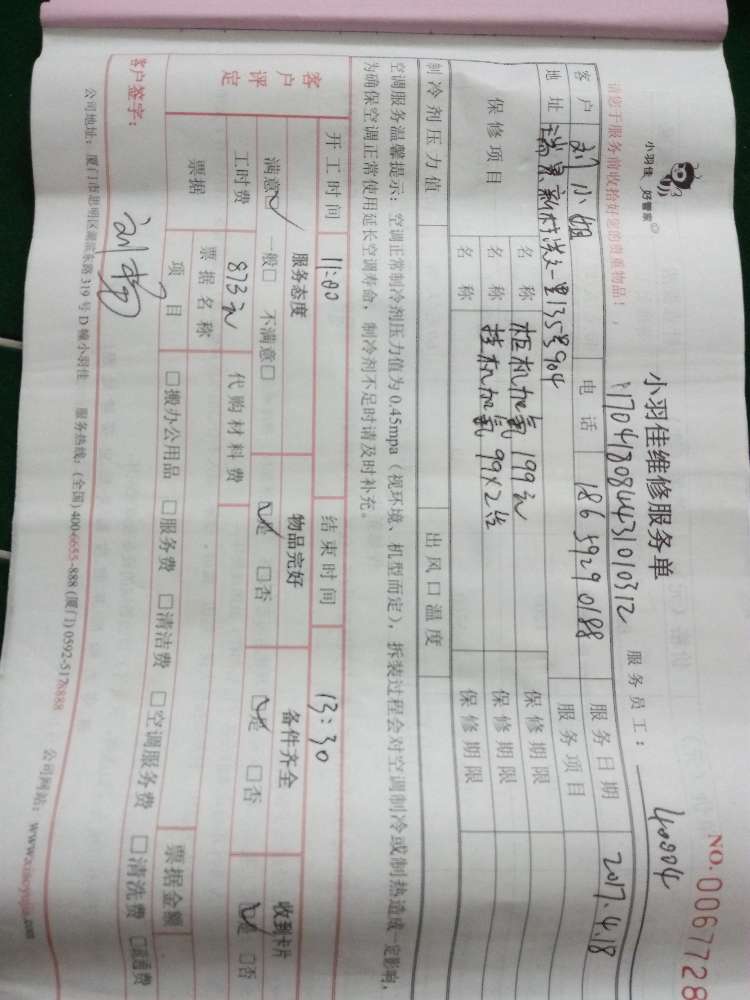 小羽佳 好管家
小羽佳维修服务单
NO.0067728
170418084431010312
服务员工： 40004
请您于服务前收拾好您的贵重物品！
客户 刘小姐 电话 18659290188 服务日期 2017.4.18
地址 瑞景新村洪文一里135号904 服务项目
保修项目 名称 柜机加氟 199元 保修期限
名称 挂机加氟 99×2台 保修期限
名称 保修期限
制冷剂压力值 出风口温度
空调服务温馨提示：空调正常制冷剂压力值为0.45mpa（视环境、机型而定），拆装过程会对空调制冷或制热造成一定影响，
为确保空调正常使用延长空调寿命，制冷剂不足时请及时补充。
开工时间 11:00 结束时间 13:30
客户评定 服务态度 物品完好 备件齐全 收到卡片
满意□ 一般□ 不满意□ □是 □否 □是 □否 □是 □否
工时费 873元 代购材料费
票据 票据名称 票据金额
项目 □搬办公用品 □服务费 □清洁费 □空调服务费 □清洗费 □疏通费
客户签字：
公司地址：厦门市思明区湖滨东路319号D幢小羽佳 服务热线：(全国)400-6655-888 (厦门)0592-5178888 公司网站：www.xiaoyujia.com